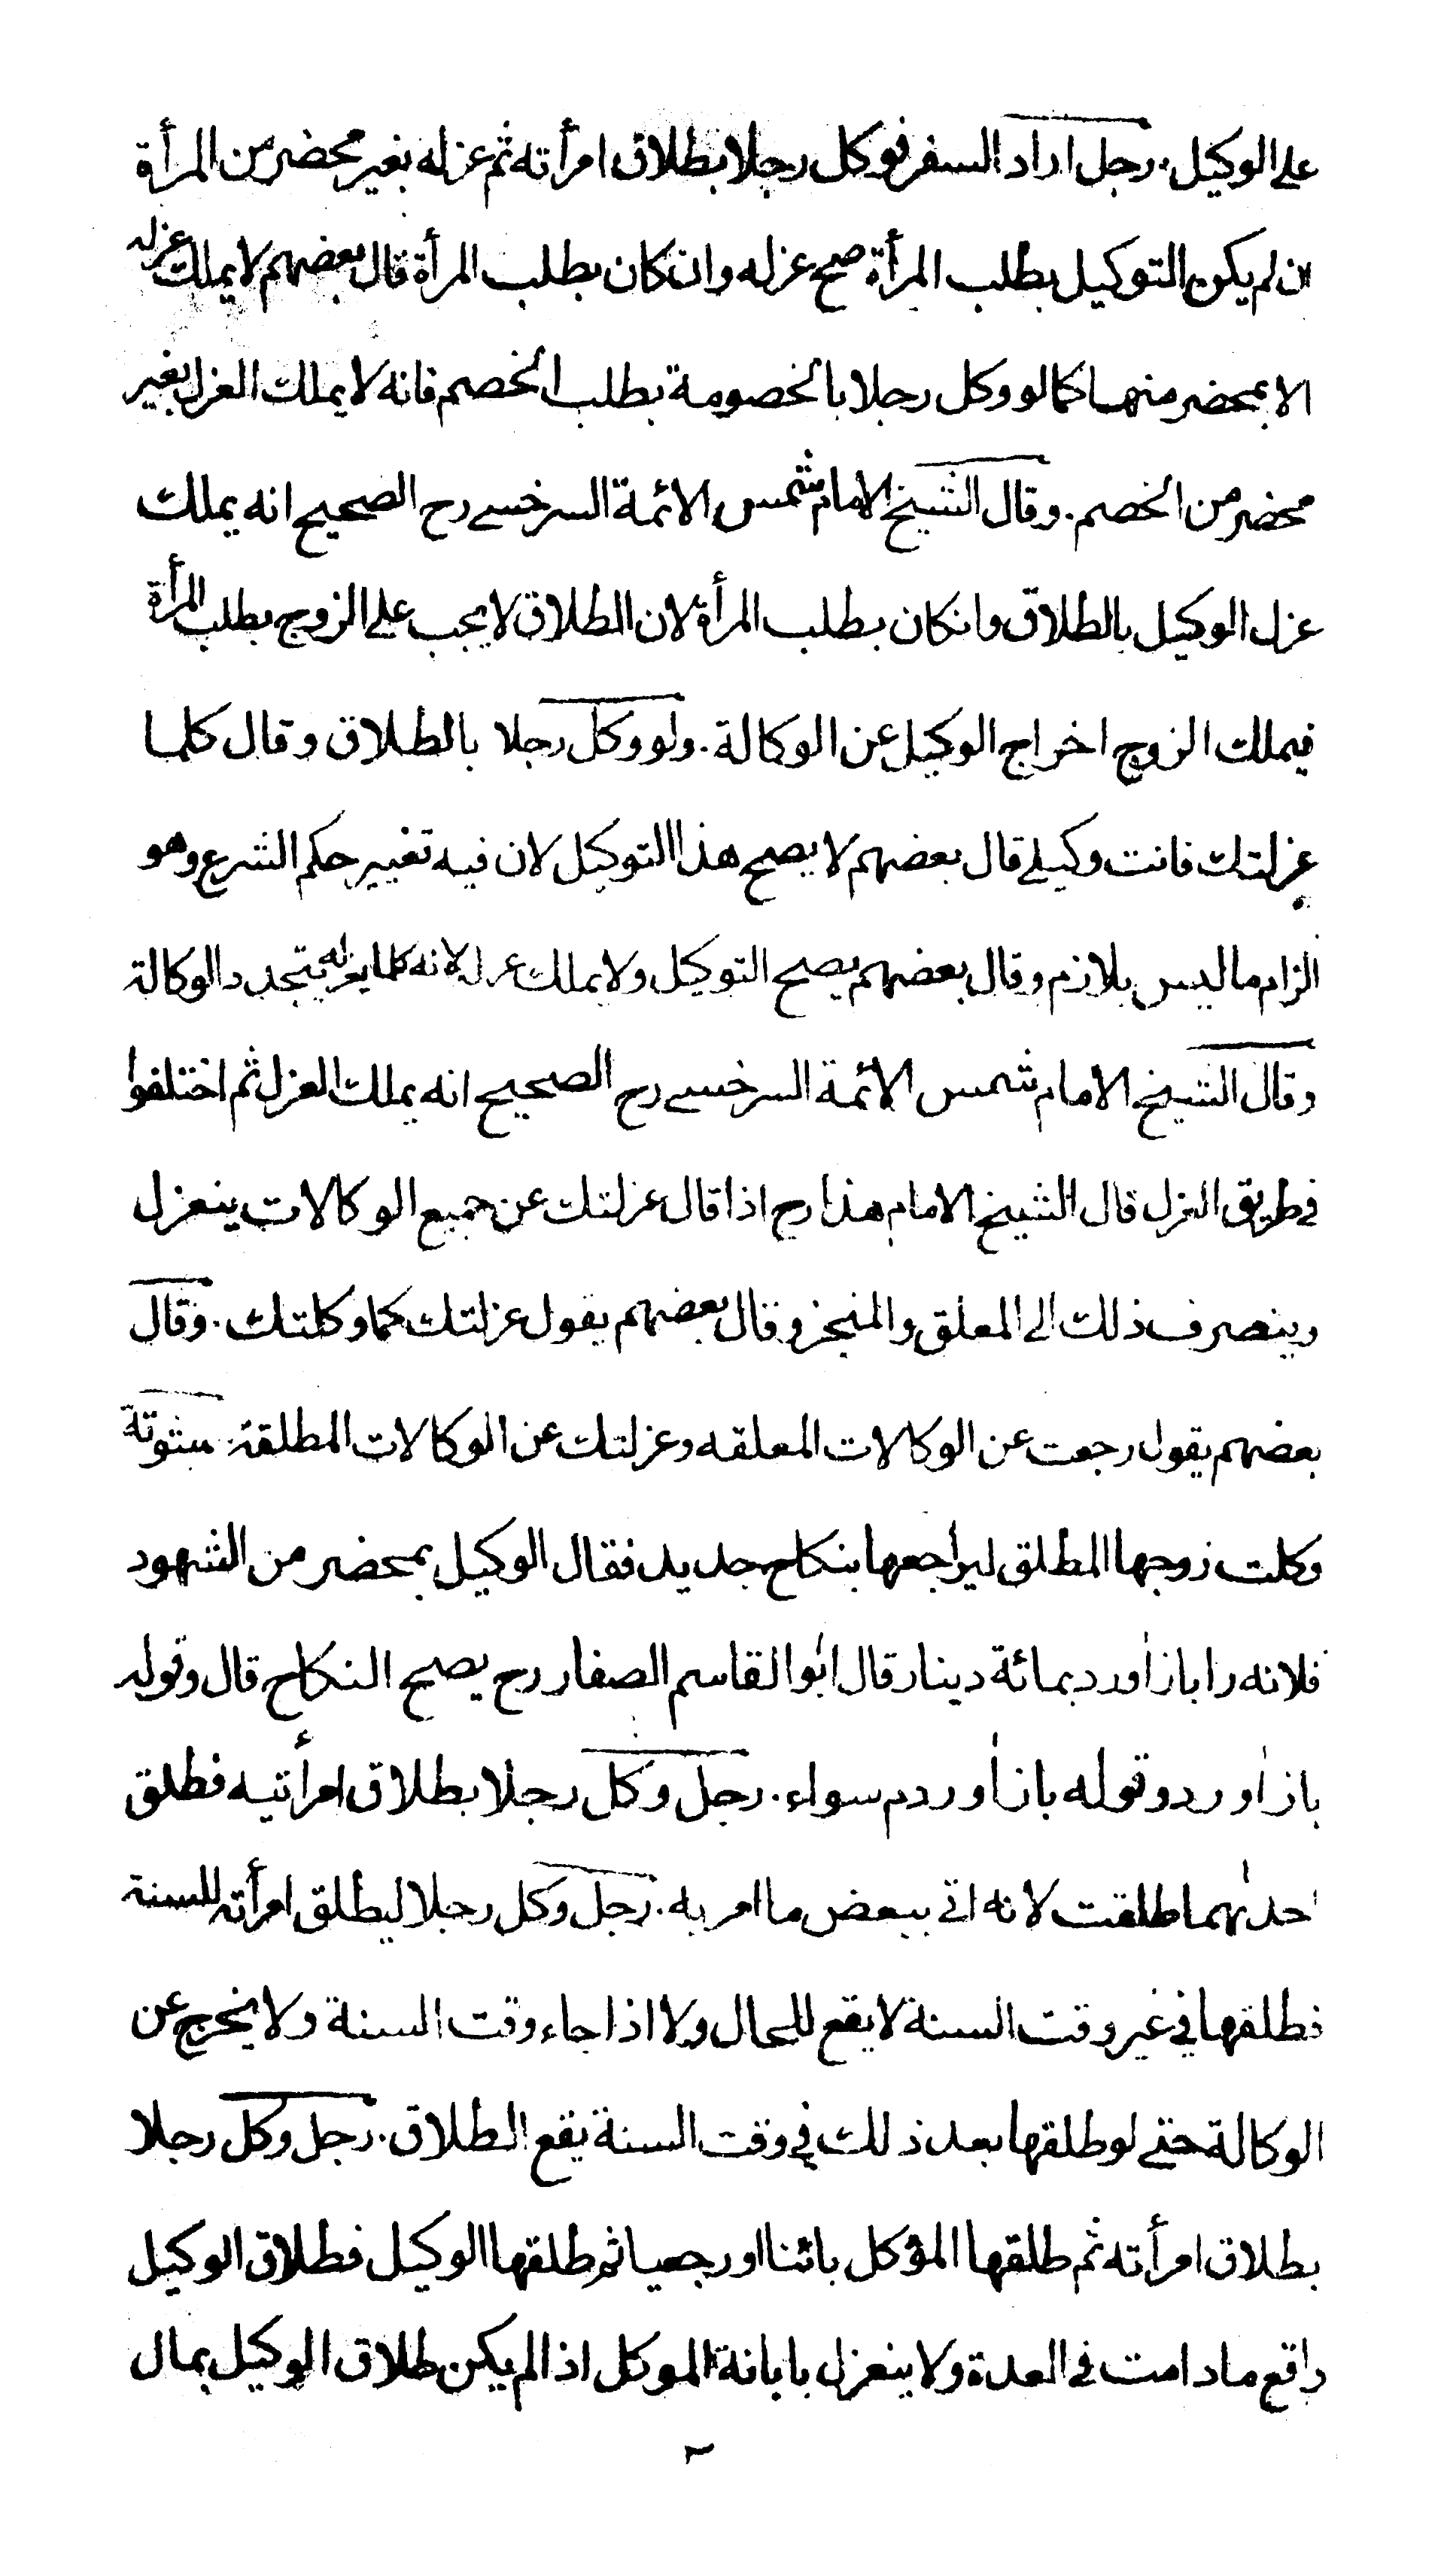 على الوكيل. رجل اراد السفر فوكل رجلا بطلاق امرأته ثم عزله بغير محضر من المرأة
ان لم يكن التوكيل بطلب المرأة صح عزله وان كان بطلب المرأة قال بعضهم لا يملك عزله
الا بمحضر منها كما لو وكل رجلا بالخصومة بطلب الخصم فانه لا يملك العزل بغير
محضر من الخصم. وقال الشيخ الامام شمس الائمة السرخسي رح الصحيح انه يملك
عزل الوكيل بالطلاق وانكان بطلب المرأة لان الطلاق لا يجب على الزوج بطلب المرأة
فيملك الزوج اخراج الوكيل عن الوكالة. ولو وكل رجلا بالطلاق وقال كلما
عزلتك فانت وكيلي قال بعضهم لا يصح هذا التوكيل لان فيه تغيير حكم الشرع وهو
الزام ما ليس بلازم وقال بعضهم يصح التوكيل ولا يملك عزله لانه كلما يعزله يتجدد الوكالة
وقال الشيخ الامام شمس الائمة السرخسي رح الصحيح انه يملك العزل ثم اختلفوا
في طريق العزل قال الشيخ الامام هذا رح اذا قال عزلتك عن جميع الوكالات ينعزل
وينصرف ذلك الى المعلق والمنجز وقال بعضهم يقول عزلتك كما وكلتك. وقال
بعضهم يقول رجعت عن الوكالات المعلقه وعزلتك عن الوكالات المطلقة مبتوتة
وكلت زوجها المطلق ليراجعها بنكاح جديد فقال الوكيل بمحضر من الشهود
فلانه را باز اورد بمائة دينار قال ابو القاسم الصفار رح يصح النكاح قال وقوله
باز اورد وقوله باز اوردم سواء. رجل وكل رجلا بطلاق امرأتيه فطلق
احدٰهما طلقت لانه اتى ببعض ما امر به. رجل وكل رجلا ليطلق امرأته للسنة
فطلقها في غير وقت السنة لا يقع للحال ولا اذا جاء وقت السنة ولا يخرج عن
الوكالة حتى لو طلقها بعد ذلك في وقت السنة يقع الطلاق. رجل وكل رجلا
بطلاق امرأته ثم طلقها المؤكل بائنا او رجعيا ثم طلقها الوكيل فطلاق الوكيل
واقع ما دامت في العدة ولا ينعزل بابانة الموكل اذا لم يكن طلاق الوكيل بمال